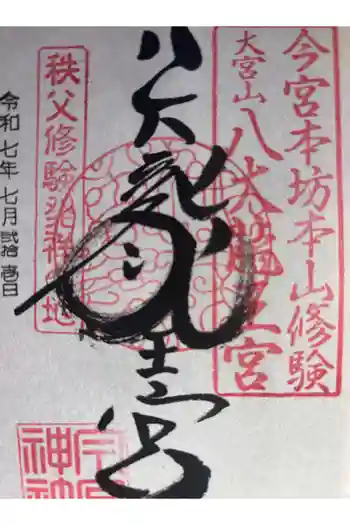 今宮本坊本山修験
大宮山
八大龍王宮
八大龍王宮
秩父修験発祥の地
令和七年七月弐拾壱日